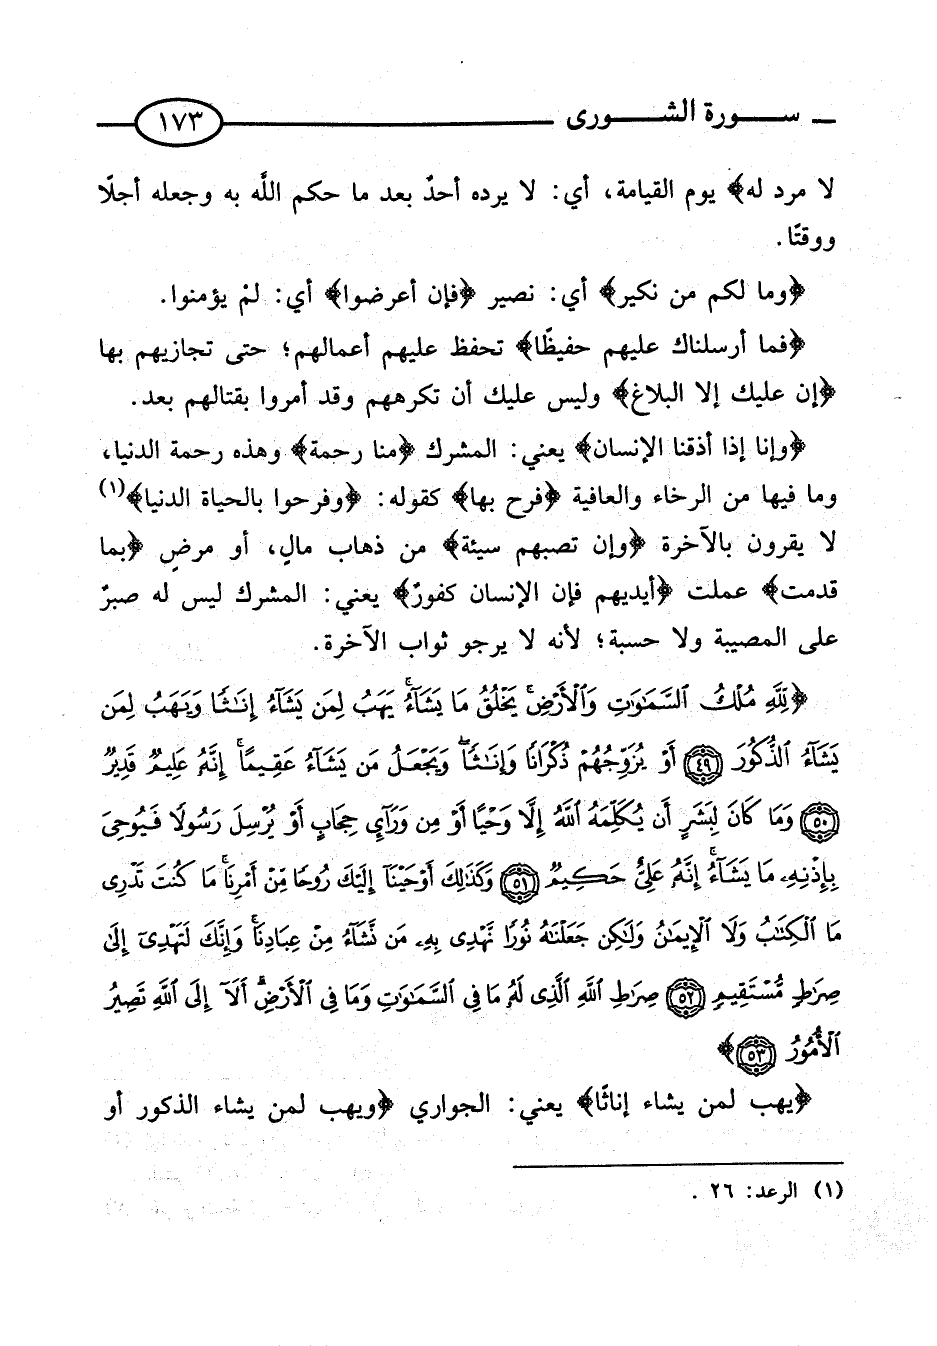 سورة الشورى ١٧٣
لا مرد له﴾ يوم القيامة، أي: لا يرده أحدٌ بعد ما حكم اللَّه به وجعله أجلًا
ووقتًا.
﴿وما لكم من نكير﴾ أي: نصير ﴿فإن أعرضوا﴾ أي: لمْ يؤمنوا.
﴿فما أرسلناك عليهم حفيظًا﴾ تحفظ عليهم أعمالهم؛ حتى تجازيهم بها
﴿إن عليك إلا البلاغ﴾ وليس عليك أن تكرههم وقد أمروا بقتالهم بعد.
﴿وإنا إذا أذقنا الإنسان﴾ يعني: المشرك ﴿منا رحمة﴾ وهذه رحمة الدنيا،
وما فيها من الرخاء والعافية ﴿فرح بها﴾ كقوله: ﴿وفرحوا بالحياة الدنيا﴾(١)
لا يقرون بالآخرة ﴿وإن تصبهم سيئة﴾ من ذهاب مالٍ، أو مرضٍ ﴿بما
قدمت﴾ عملت ﴿أيديهم فإن الإنسان كفورٌ﴾ يعني: المشرك ليس له صبرٌ
على المصيبة ولا حسبة؛ لأنه لا يرجو ثواب الآخرة.
﴿لِلَّهِ مُلْكُ السَّمَٰوَٰتِ وَالْأَرْضِ ۚ يَخْلُقُ مَا يَشَآءُ ۚ يَهَبُ لِمَن يَشَآءُ إِنَٰثًا وَيَهَبُ لِمَن
يَشَآءُ الذُّكُورَ ٤٩ أَوْ يُزَوِّجُهُمْ ذُكْرَانًا وَإِنَٰثًا ۖ وَيَجْعَلُ مَن يَشَآءُ عَقِيمًا ۚ إِنَّهُ عَلِيمٌ قَدِيرٌ
٥٠ وَمَا كَانَ لِبَشَرٍ أَن يُكَلِّمَهُ اللَّهُ إِلَّا وَحْيًا أَوْ مِن وَرَآئِ حِجَابٍ أَوْ يُرْسِلَ رَسُولًا فَيُوحِيَ
بِإِذْنِهِۦ مَا يَشَآءُ ۚ إِنَّهُ عَلِيٌّ حَكِيمٌ ٥١ وَكَذَٰلِكَ أَوْحَيْنَآ إِلَيْكَ رُوحًا مِّنْ أَمْرِنَا ۚ مَا كُنتَ تَدْرِى
مَا الْكِتَٰبُ وَلَا الْإِيمَٰنُ وَلَٰكِن جَعَلْنَٰهُ نُورًا نَّهْدِى بِهِۦ مَن نَّشَآءُ مِنْ عِبَادِنَا ۚ وَإِنَّكَ لَتَهْدِىٓ إِلَىٰ
صِرَٰطٍ مُّسْتَقِيمٍ ٥٢ صِرَٰطِ اللَّهِ الَّذِى لَهُۥ مَا فِى السَّمَٰوَٰتِ وَمَا فِى الْأَرْضِ ۗ أَلَآ إِلَى اللَّهِ تَصِيرُ
الْأُمُورُ ٥٣﴾
﴿يهب لمن يشاء إناثًا﴾ يعني: الجواري ﴿ويهب لمن يشاء الذكور أو
(١) الرعد: ٢٦ .